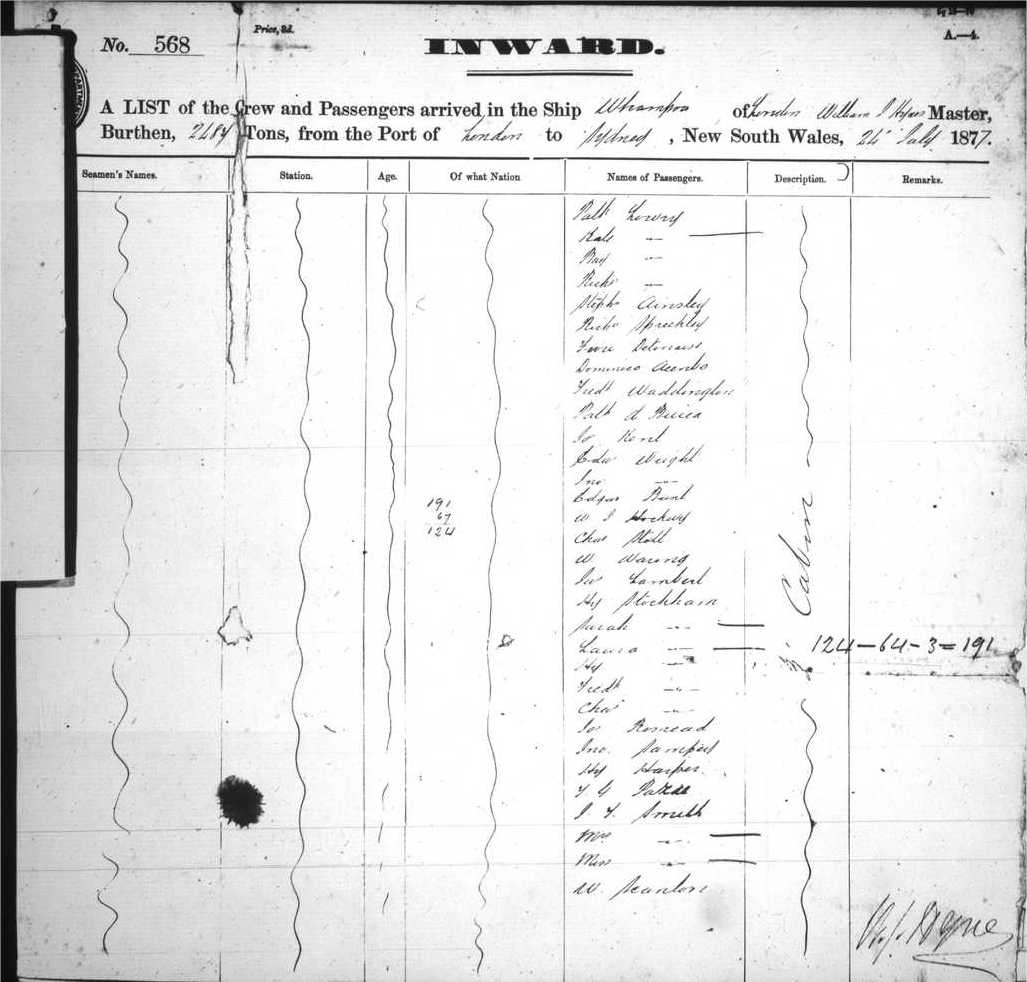 No. 568
Price, 3d.
A.—4.
INWARD.
A LIST of the Crew and Passengers arrived in the Ship Whampoa of London William Master,
Burthen, Tons, from the Port of London to Sydney, New South Wales, 24 July 1877.
Seamen's Names. Station. Age. Of what Nation Names of Passengers. Description. Remarks.
Patk Lowry
Kate —
May —
Richd —
Stephn Ainsley
Richd Spreckley
Dominico
Fredk Waddington
Patk
Jo Kent
Edw Wright
Jno —
Edgar Bunt
191
67
124
W J
Chas Stott
W Waring
Jas Lambert
Hy Stockham
Sarah —
Laura —
Hy —
Fredk —
Chas —
Jos
Jno.
Hy Harper
J. F. Smith
Mrs —
Miss —
W. Scanlon
Cabin
124—64—3=191